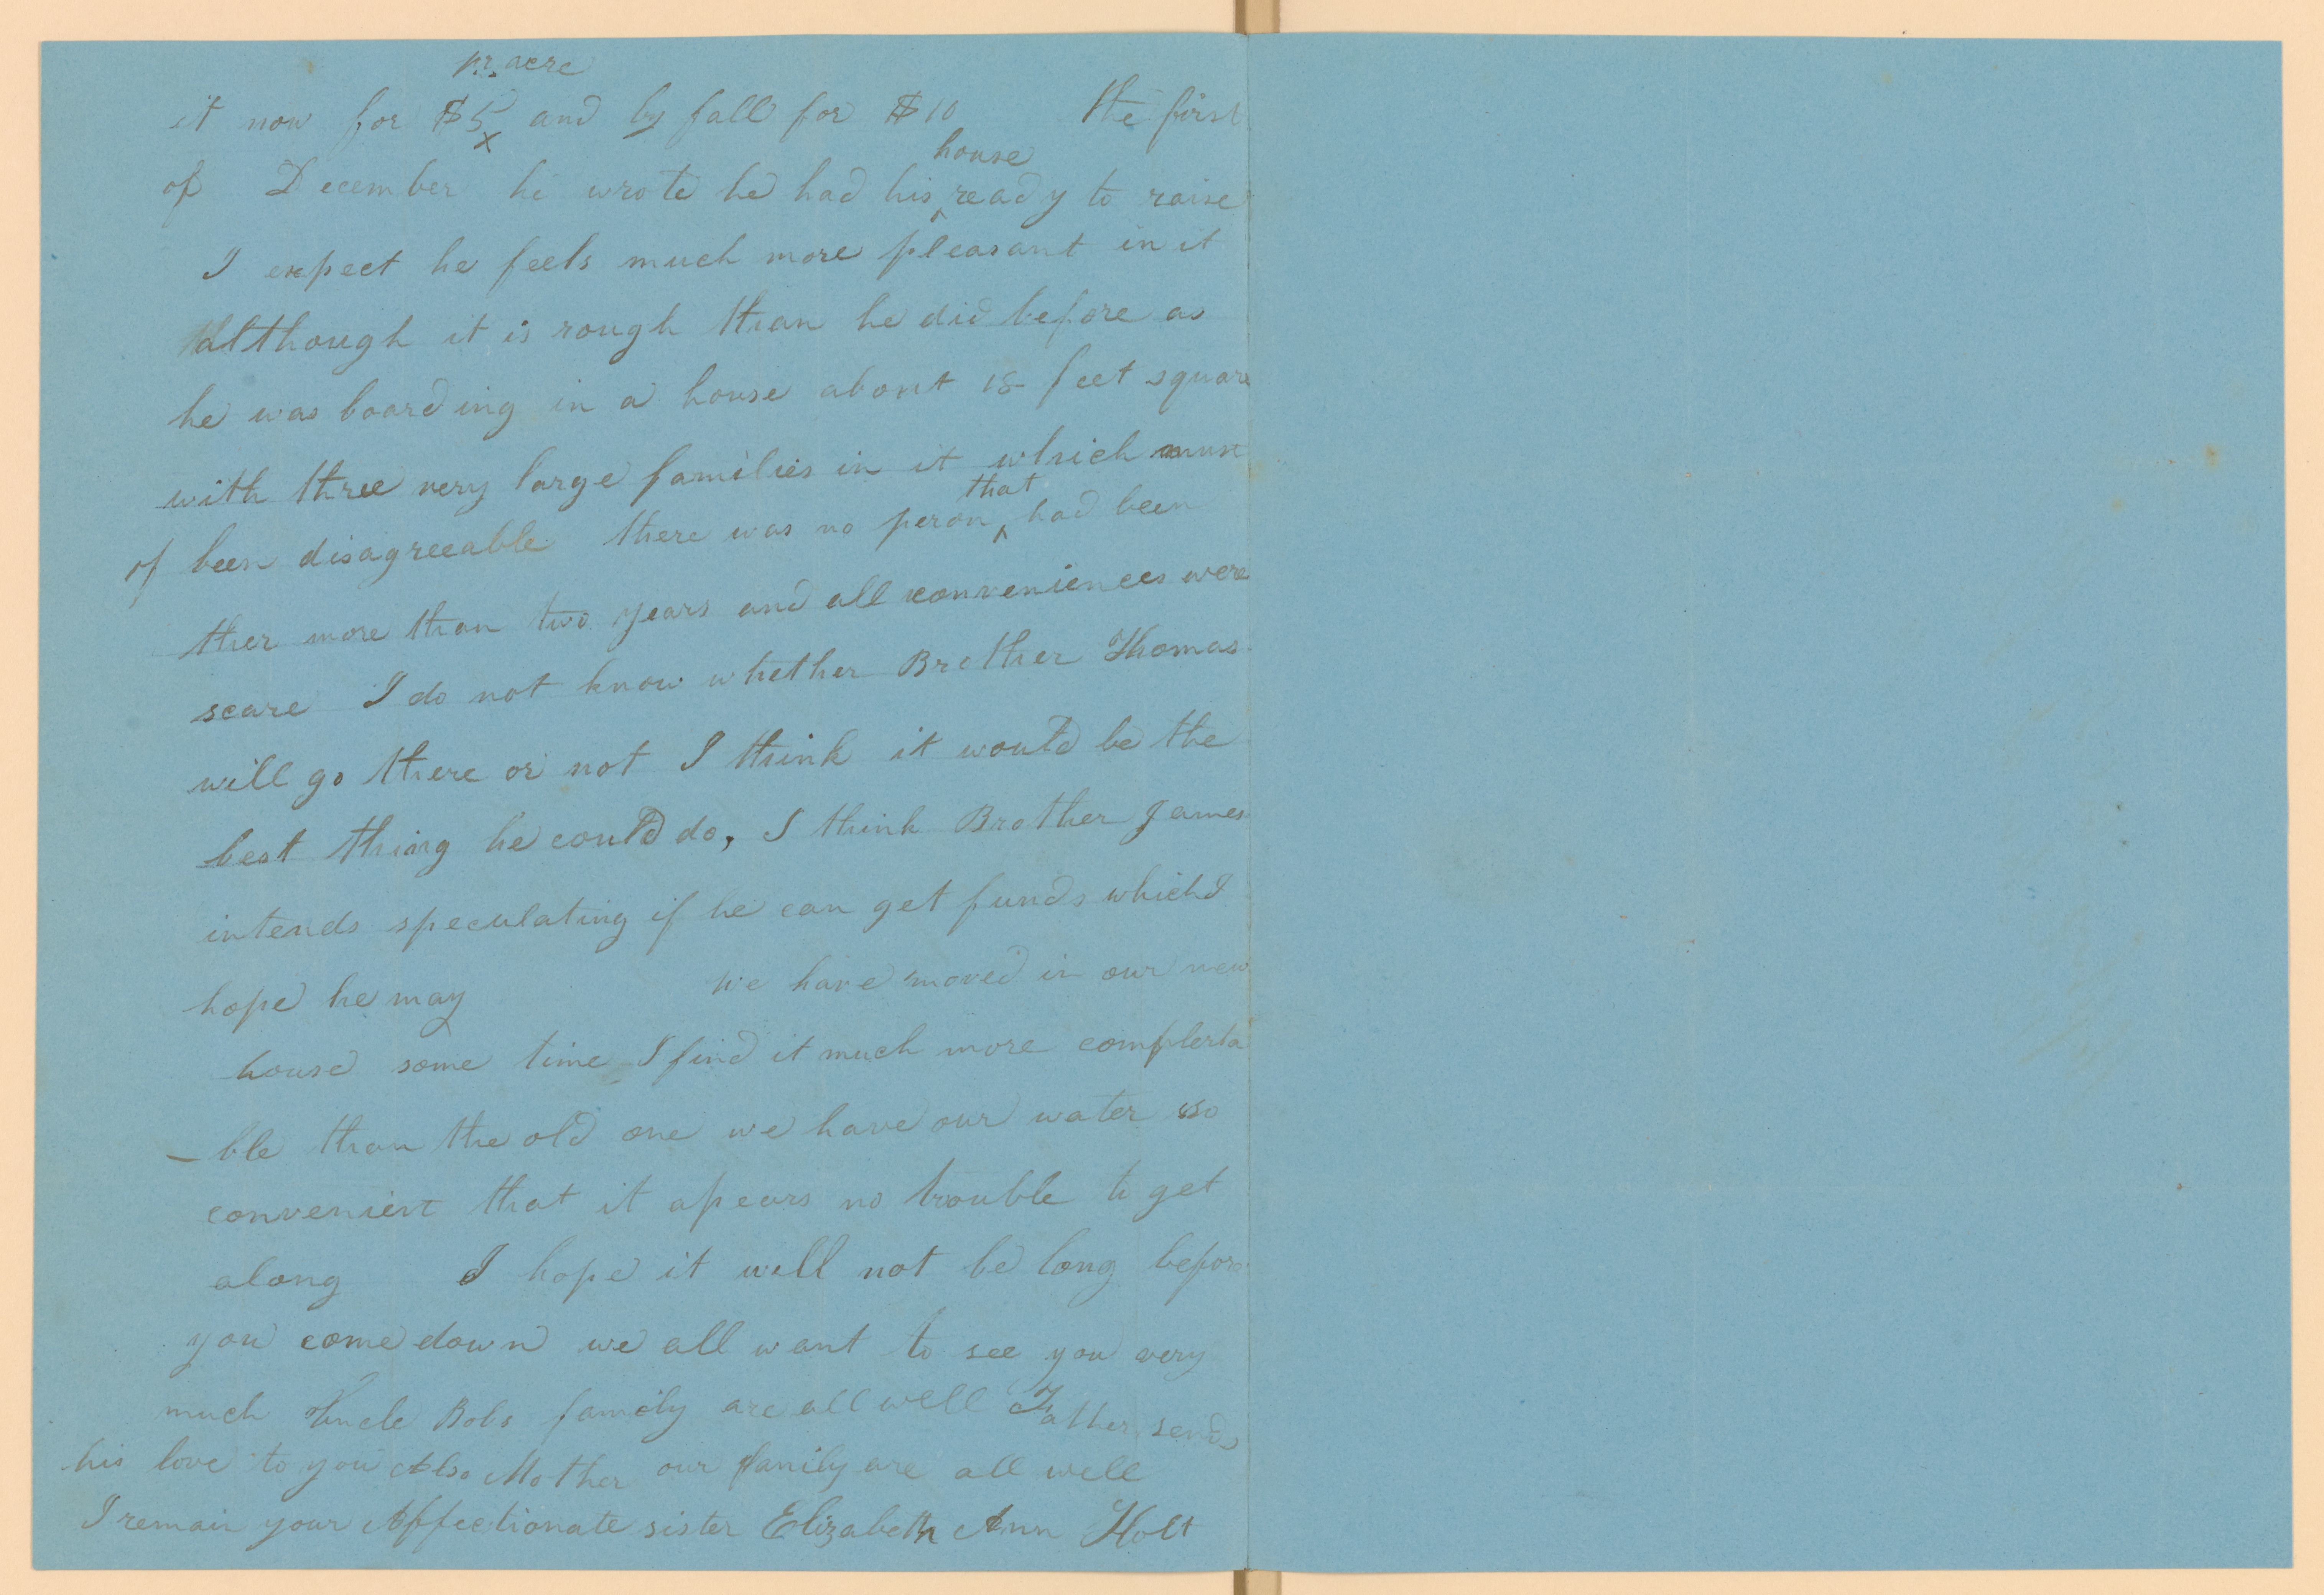 pr. acre
it now for $5 x and by fall for $10 the first
house
of December he wrote he had his ^ ready to raise
I expect he feels much more pleasant in it
although it is rough than he did before as
he was boarding in a house about 18 feet square
with three very large families in it which must
that
of been disagreeable there was no peron ^ had been
ther more than two years and all conveniences were
scare I do not know whether Brother Thomas
will go there or not I think it would be the
best thing he could do, I think Brother James
intends speculating if he can get funds which I
hope he may We have moved in our new
house some time I find it much more complerta
– ble than the old one we have our water so
convenient that it apears no trouble to get
along I hope it will not be long before
you come down we all want to see you very
much Uncle Bobs family are all well Father sends
his love to you Also Mother our family are all well
I remain your Affectionate sister Elizabeth Ann Holt